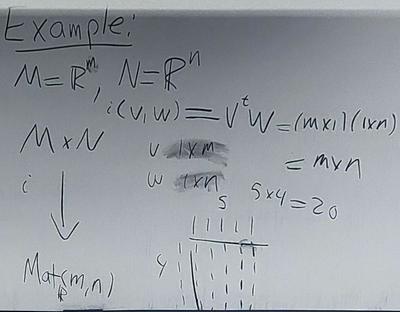 Example:
M=ℝ^m, N=ℝ^n
i(v,w)=v^t w=(m×1)(1×n)
M×N
v 1×m
=m×n
w 1×n
i
5
5×4=20
4
Mat_ℝ(m,n)